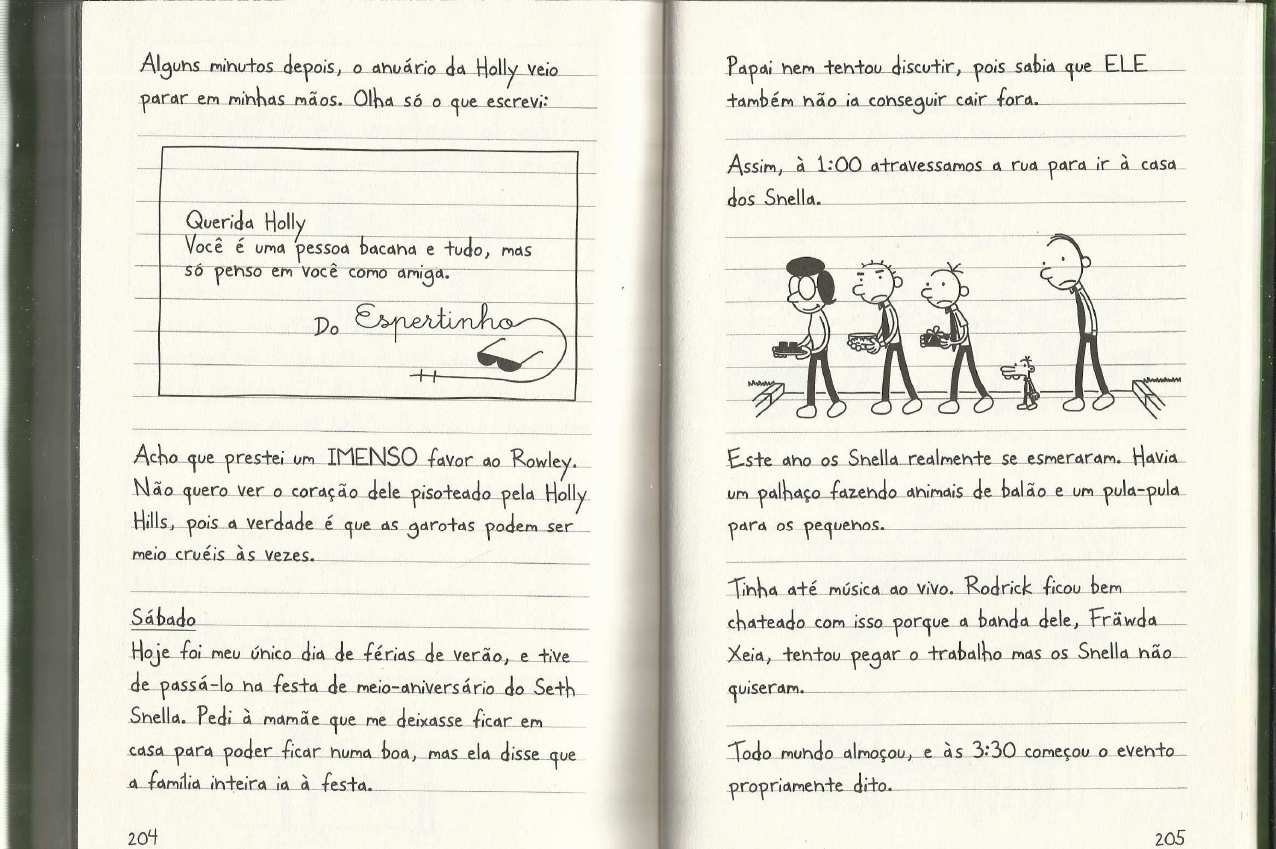 Alguns minutos depois, o anuário da Holly veio
parar em minhas mãos. Olha só o que escrevi:
Querida Holly
Você é uma pessoa bacana e tudo, mas
só penso em você como amiga.
Do Espertinho
Acho que prestei um IMENSO favor ao Rowley.
Não quero ver o coração dele pisoteado pela Holly
Hills, pois a verdade é que as garotas podem ser
meio cruéis às vezes.
Sábado
Hoje foi meu único dia de férias de verão, e tive
de passá-lo na festa de meio-aniversário do Seth
Snella. Pedi à mamãe que me deixasse ficar em
casa para poder ficar numa boa, mas ela disse que
a família inteira ia à festa.
204
Papai nem tentou discutir, pois sabia que ELE
também não ia conseguir cair fora.
Assim, à 1:00 atravessamos a rua para ir à casa
dos Snella.
Este ano os Snella realmente se esmeraram. Havia
um palhaço fazendo animais de balão e um pula-pula
para os pequenos.
Tinha até música ao vivo. Rodrick ficou bem
chateado com isso porque a banda dele, Fräwda
Xeia, tentou pegar o trabalho mas os Snella não
quiseram.
Todo mundo almoçou, e às 3:30 começou o evento
propriamente dito.
205